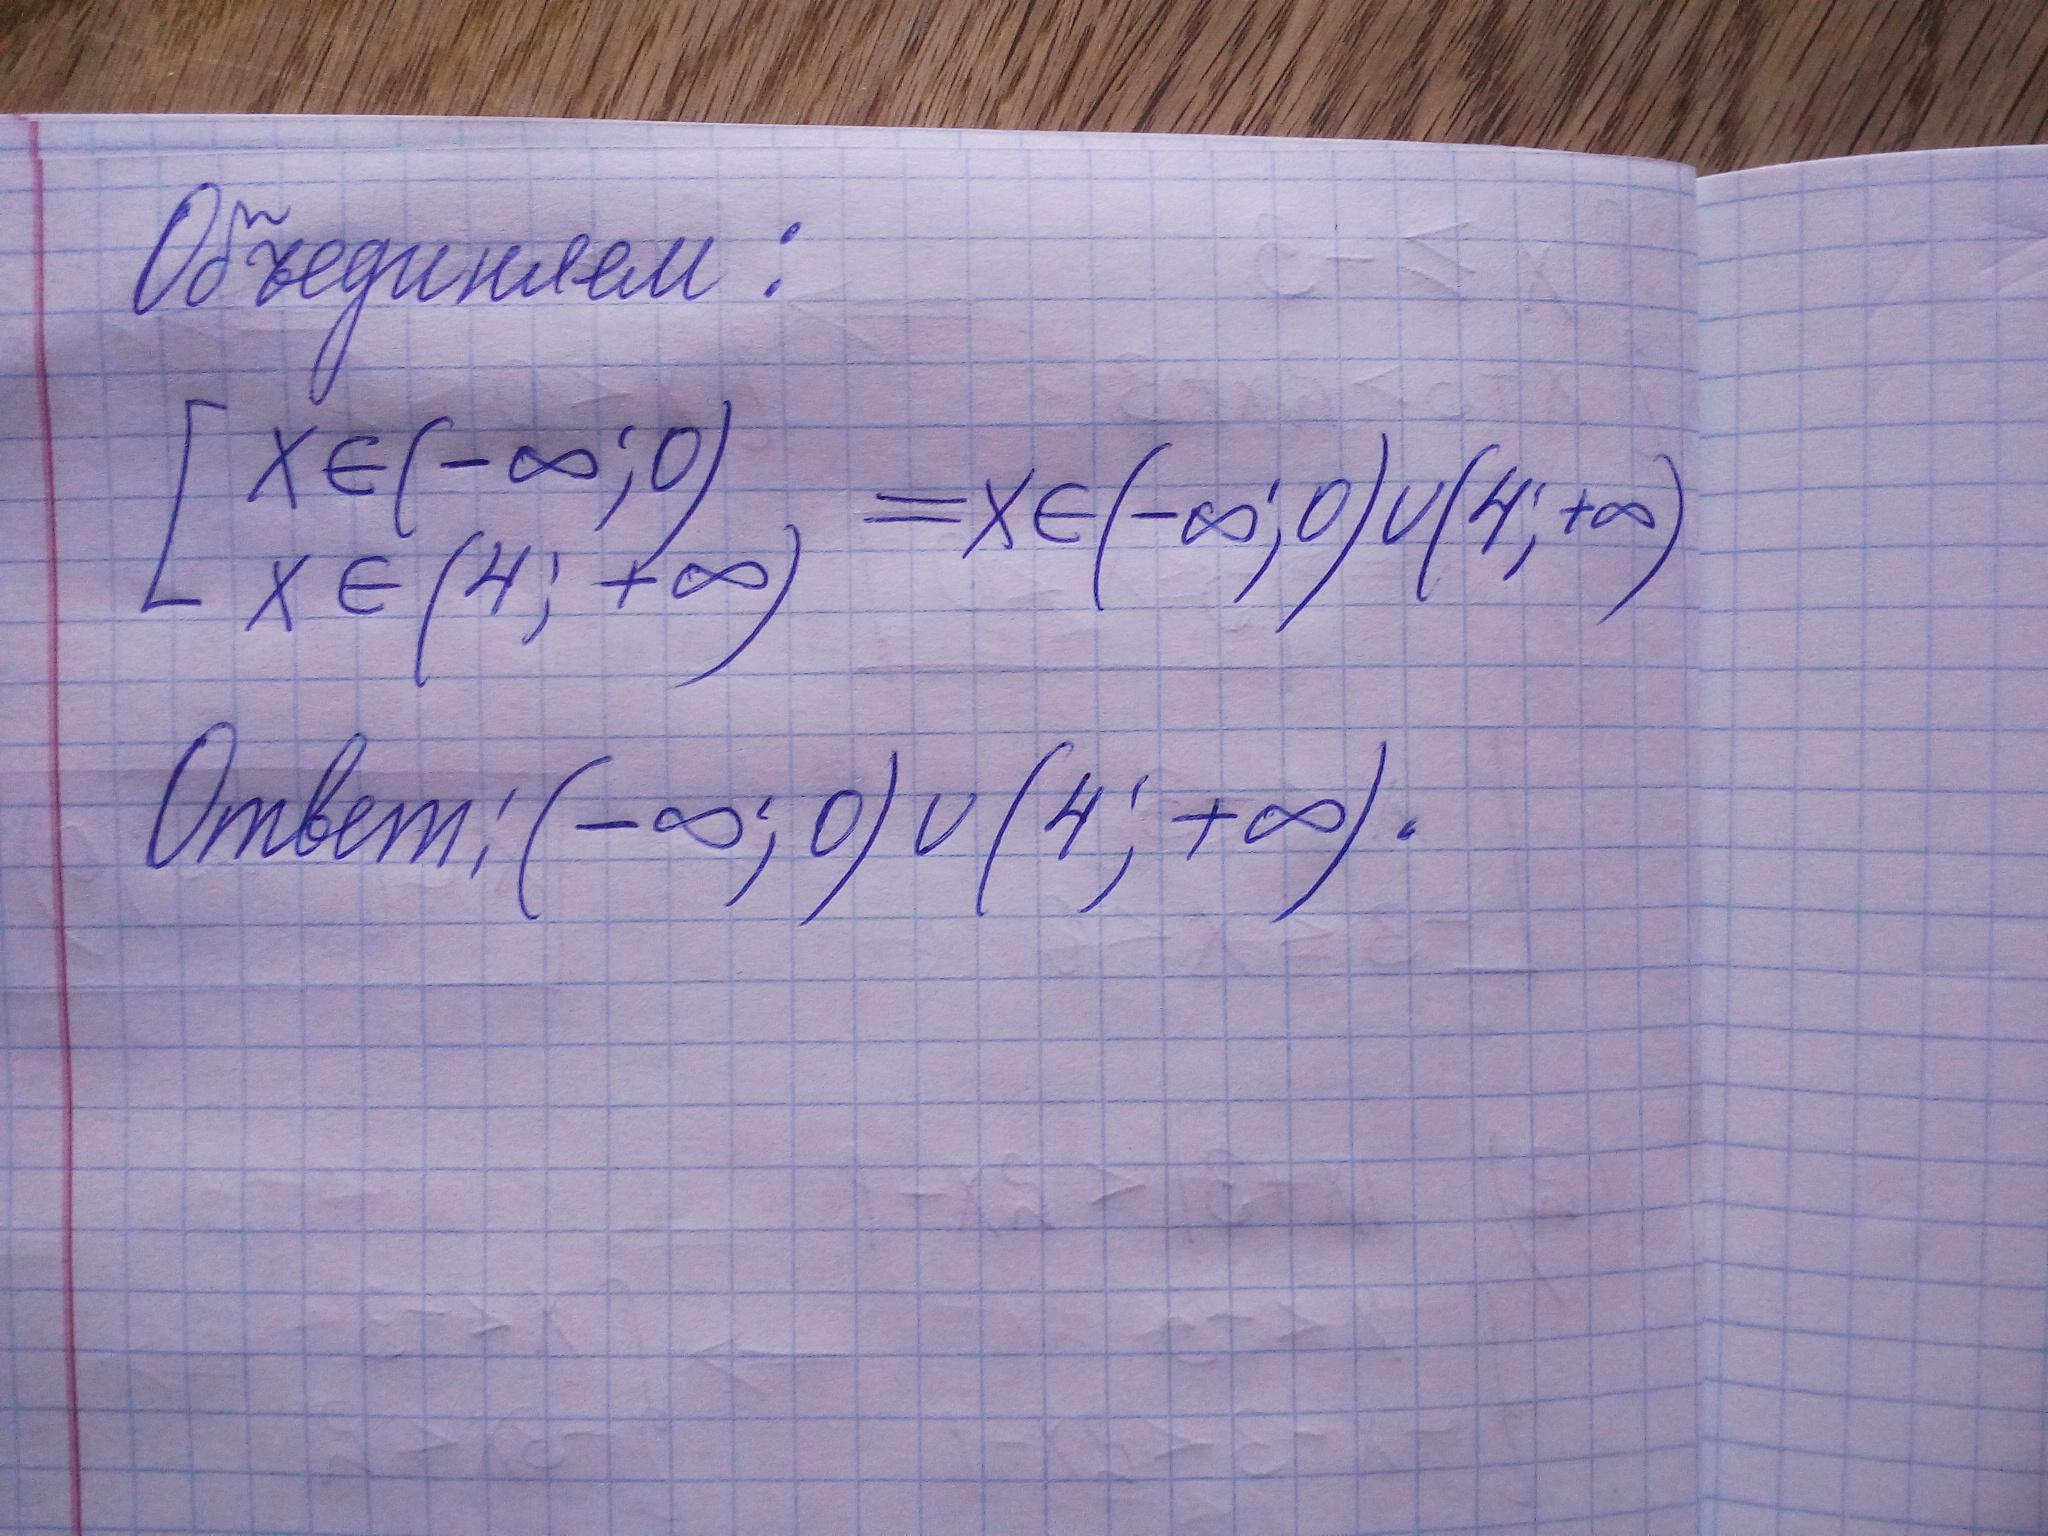 Объединяем:
[ x∈(-∞;0)
x∈(4;+∞) = x∈(-∞;0)∪(4;+∞)
Ответ: (-∞;0)∪(4;+∞).